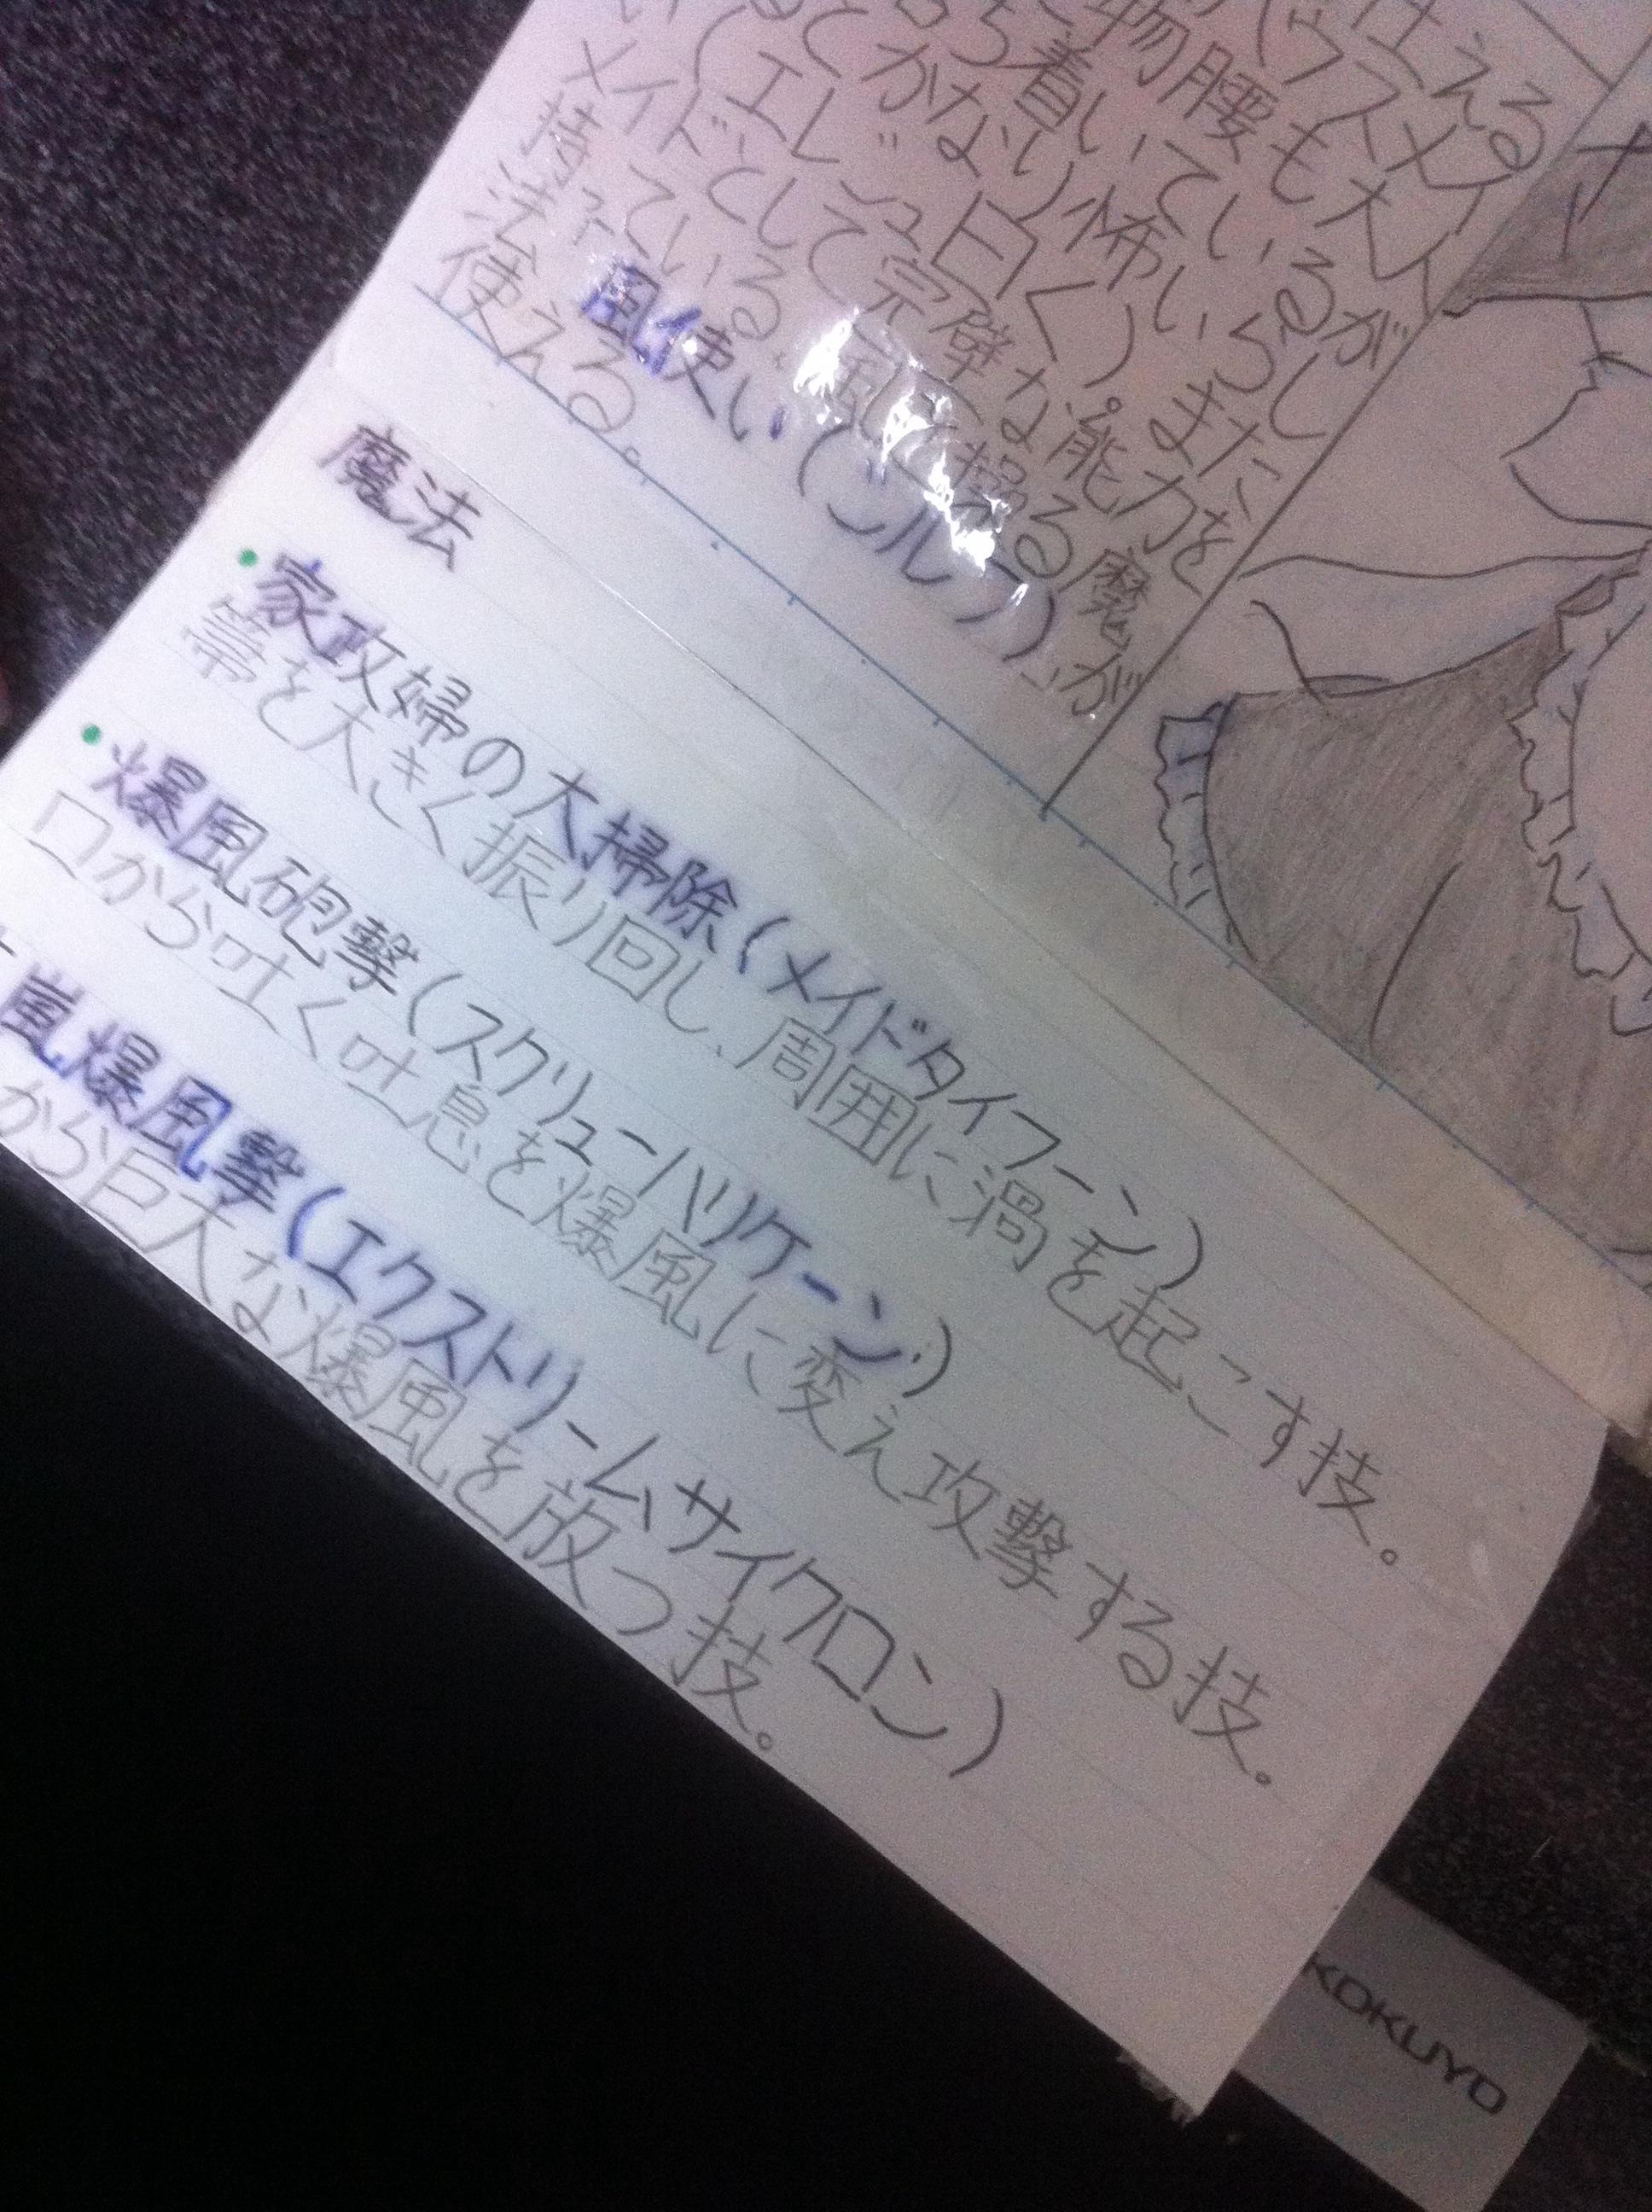 仕える
ハウスメイ
物腰も大人
ち着いているがし
とかなり怖いらし
(エレジュ曰く)。また、
メイドとして完璧な能力を
持っている。風を操る魔
法、風使い(シルフ)、が
使える。
魔法
・家政婦の大掃除(メイドタイフーン)
箒を大きく振り回し、周囲に渦を起こす技。
・爆風砲撃(スクリューハリケーン)
口から吐く吐息を爆風に変え攻撃する技。
嵐爆風撃(エクストリームサイクロン)
から巨大な爆風を放つ技。
KOKUYO